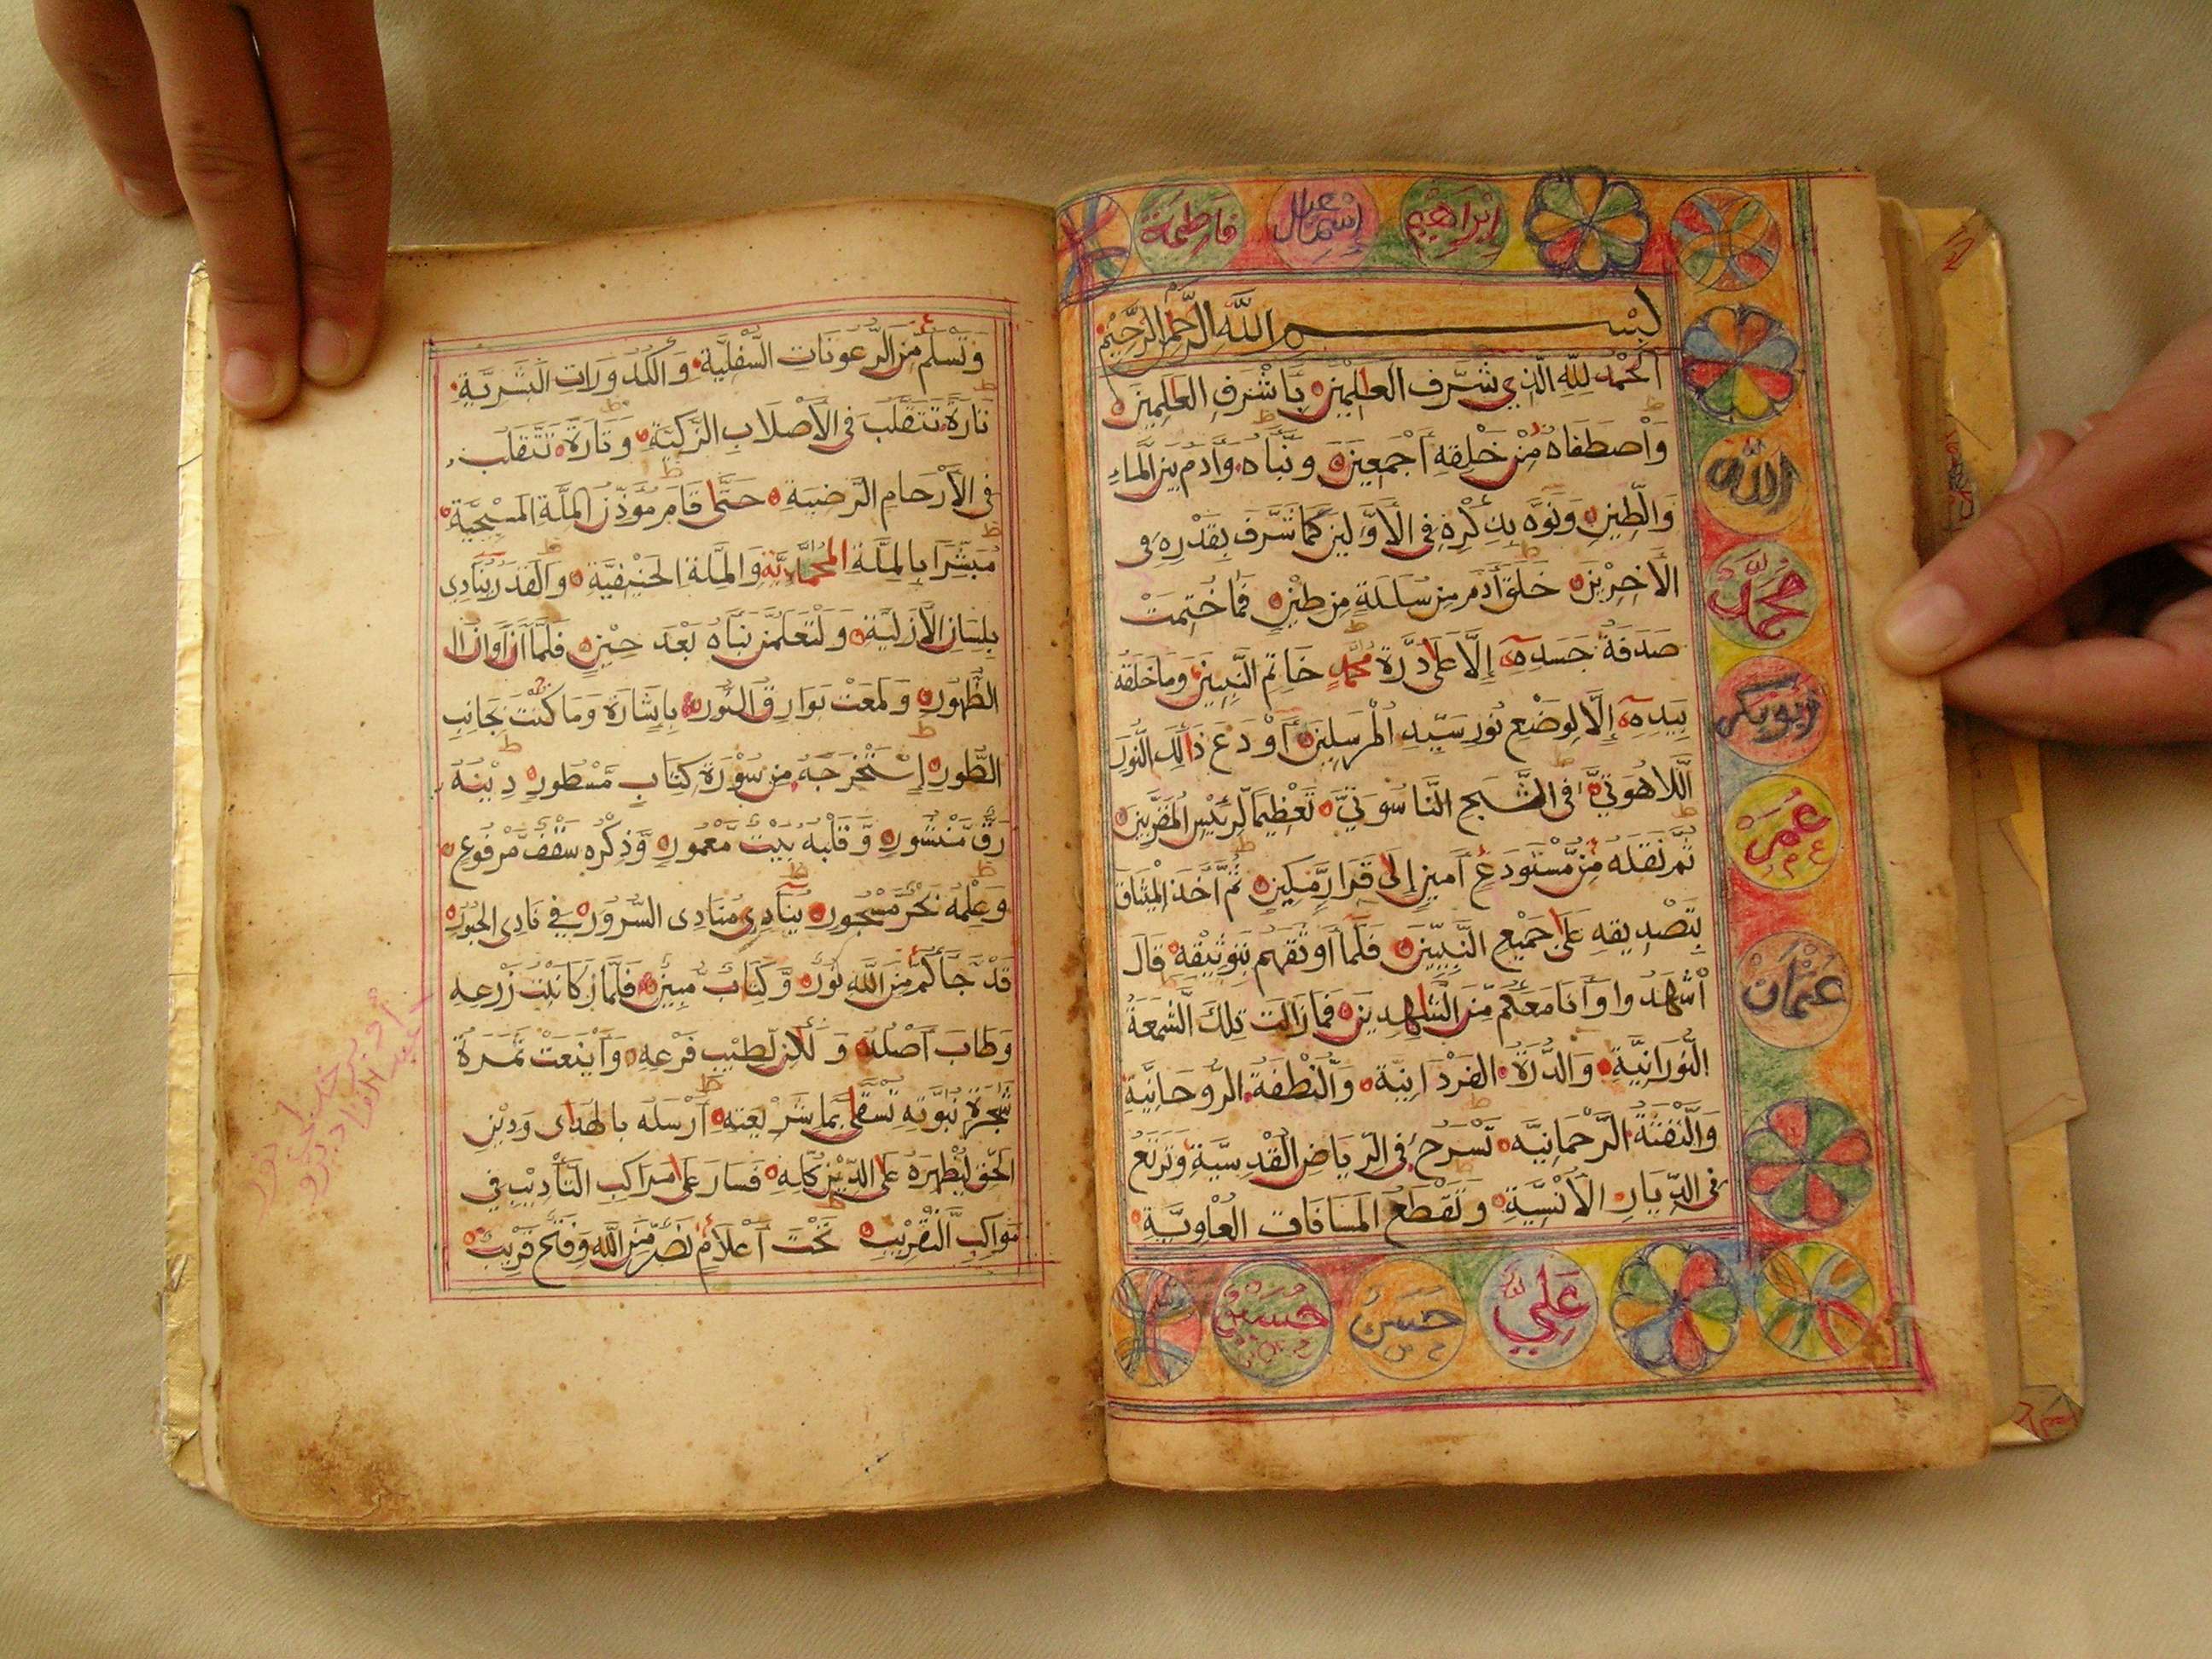 فاطمة
إسماعيل
إبراهيم
بِسْمِ اللَّهِ الرَّحْمٰنِ الرَّحِيْمِ
اَلْحَمْدُ لِلّٰهِ الَّذِي شَرَّفَ الْعٰلَمِيْنَ بِأَشْرَفِ الْعٰلَمِيْنَ
وَاصْطَفَاهُ مِنْ خَلْقِهِ أَجْمَعِيْنَ وَنَبَّاهُ وَأٰدَمُ بَيْنَ الْمَاءِ
وَالطِّيْنِ وَنَوَّهَ بِذِكْرِهِ فِي الْأَوَّلِيْنَ كَمَا شَرَّفَ بِقَدْرِهِ فِي
الْأٰخِرِيْنَ خَلَقَ أٰدَمَ مِنْ سُلٰلَةٍ مِنْ طِيْنٍ فَمَا خُتِمَتْ
صَدَفَةُ جَسَدِهِ إِلَّا عَلَى دُرَّةِ مُحَمَّدٍ خَاتِمِ النَّبِيِّيْنَ وَمَا خَلَقَهُ
بِيَدِهِ إِلَّا لِوَضْعِ نُوْرِ سَيِّدِ الْمُرْسَلِيْنَ أَوْدَعَ ذٰلِكَ النُّوْرَ
اللَّاهُوْتِيَّ فِي الشَّبَحِ النَّاسُوْتِيِّ تَعْظِيْمًا لِرَئِيْسِ الْمُقَرَّبِيْنَ
ثُمَّ نَقَلَهُ مِنْ مُّسْتَوْدَعٍ أَمِيْنٍ إِلَى قَرَارٍ مَّكِيْنٍ ثُمَّ أَخَذَ الْمِيْثَاقَ
بِتَصْدِيْقِهِ عَلَى جَمِيْعِ النَّبِيِّيْنَ فَلَمَّا أَوْثَقَهُمْ بِتَوْثِيْقِهِ قَالَ
اشْهَدُوا وَأَنَا مَعَكُمْ مِّنَ الشّٰهِدِيْنَ فَمَا زَالَتْ تِلْكَ الشَّمْعَةُ
النُّوْرَانِيَّةُ وَالدُّرَّةُ الْفَرْدَانِيَّةُ وَالنُّطْفَةُ الرُّوْحَانِيَّةُ
وَالنَّفْثَةُ الرَّحْمَانِيَّةُ تَسْرَحُ فِي الرِّيَاضِ الْقُدْسِيَّةِ وَتَرْتَعُ
فِي الدِّيَارِ الْأُنْسِيَّةِ وَتَقْطَعُ الْمَسَافَاتِ الْعُلْوِيَّةِ
الله
محمد
أبو بكر
عمر
عثمان
علي
حسن
حسين
وَتَسْلَمُ مِنَ الرَّعُوْنَاتِ السُّفْلِيَّةِ وَالْكُدُوْرَاتِ الْبَشَرِيَّةِ
تَارَةً تَتَقَلَّبُ فِي الْأَصْلَابِ الزَّكِيَّةِ وَتَارَةً تَتَقَلَّبُ
فِي الْأَرْحَامِ الرَّضِيَّةِ حَتَّى قَامَ مُؤَذِّنُ الْمِلَّةِ الْمَسِيْحِيَّةِ
مُبَشِّرًا بِالْمِلَّةِ الْمُحَمَّدِيَّةِ وَالْمِلَّةِ الْحَنِيْفِيَّةِ وَالْقَدَرُ يُنَادِي
بِلِسَانِ الْأَزَلِيَّةِ وَلَتَعْلَمُنَّ نَبَأَهُ بَعْدَ حِيْنٍ فَلَمَّا أٰنَ أَوَانُ ا
الظُّهُوْرِ وَلَمَعَتْ بَوَارِقُ النُّوْرِ بِإِشَارَةِ وَمَا كُنْتَ بِجَانِبِ
الطُّوْرِ اسْتَخْرَجَهُ مِنْ سُوْرَةِ كِتَابٍ مَّسْطُوْرٍ دِيْنُهُ
رَقٍّ مَّنْشُوْرٍ وَّقَلْبُهُ بَيْتٌ مَّعْمُوْرٌ وَّذِكْرُهُ سَقْفٌ مَّرْفُوْعٌ
وَعِلْمُهُ بَحْرٌ مَّسْجُوْرٌ يُنَادِي مُنَادِي السُّرُوْرِ فِي نَادِي الْحُبُوْرِ
قَدْ جَاءَكُمْ مِّنَ اللّٰهِ نُوْرٌ وَّكِتَابٌ مُّبِيْنٌ فَلَمَّا زَكَا نَبْتُ زَرْعِهِ
وَطَابَ أَصْلُهُ وَلَانَ لِطِيْبِ فَرْعِهِ وَأَيْنَعَتْ ثَمَرَةُ
شَجَرَةِ نُبُوَّتِهِ تُسْقَى بِمَاءِ شَرِيْعَتِهِ أَرْسَلَهُ بِالْهُدٰى وَدِيْنِ
الْحَقِّ لِيُظْهِرَهُ عَلَى الدِّيْنِ كُلِّهِ فَسَارَ عَلَى مَرَاكِبِ التَّأْدِيْبِ فِي
مَوَاكِبِ التَّقْرِيْبِ تَحْتَ أَعْلَامِ نَصْرٌ مِّنَ اللّٰهِ وَفَتْحٌ قَرِيْبٌ